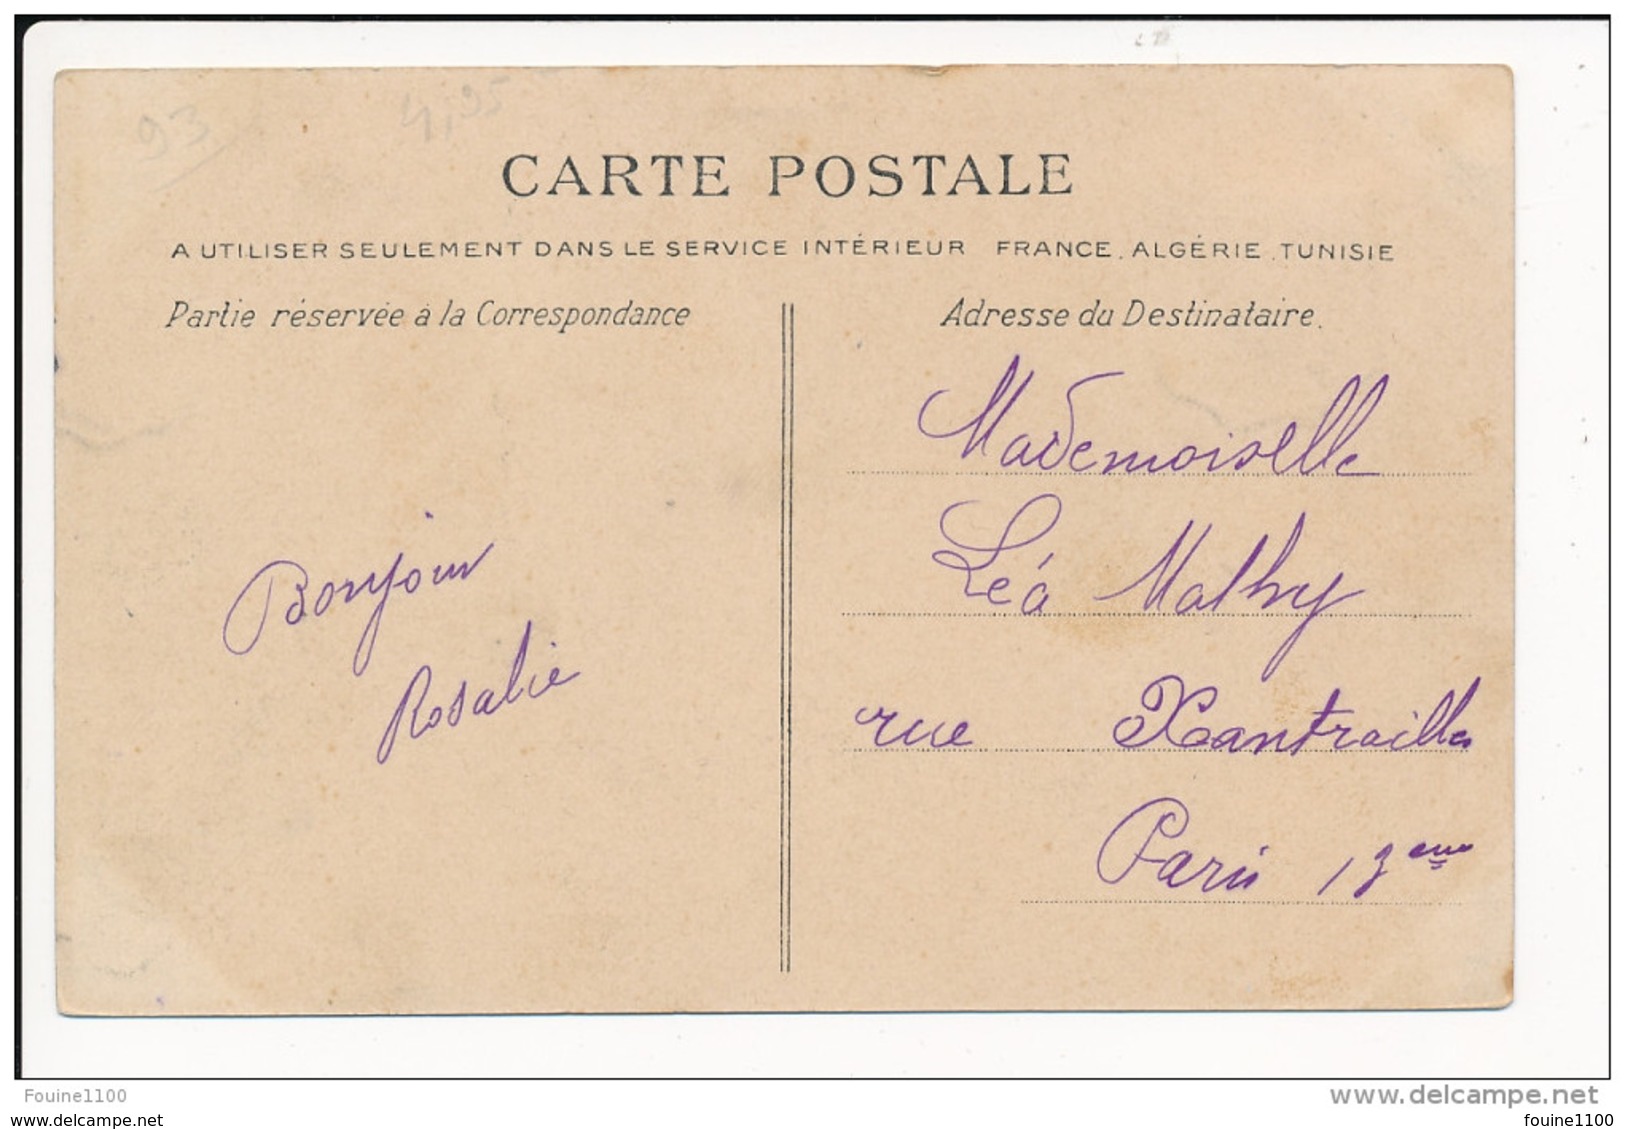 93
4,95
CARTE POSTALE
A UTILISER SEULEMENT DANS LE SERVICE INTÉRIEUR FRANCE. ALGÉRIE. TUNISIE
Partie réservée à la Correspondance
Adresse du Destinataire.
Bonjour
Rosalie
Mademoiselle
Léa Mathy
rue Xantrailles
Paris 13eme
Fouine1100
delcampe.net
posted on www.delcampe.net by
fouine1100